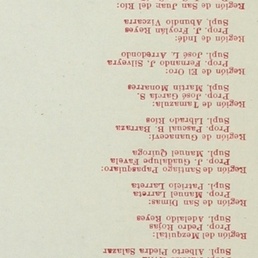 Supl. Alberto Piedra Salazar
Región del Mezquital:
Prop. Pedro Rojas
Supl. Adelaido Reyes
Región de San Dimas:
Prop. Manuel Larreta
Supl. Larreta
Región de Santiago Papasquiaro:
Prop. J. Guadalupe Favela
Supl. Manuel Quiroga
Región de Guanaceví:
Prop. Pascual B. Barraza
Supl. Librado Ríos
Región de Tamazula:
Prop. José García S.
Supl. Martín Monarres
Región de El Oro:
Prop. Fernando J. Silveyra
Supl. José L. Arredondo
Región de Indé:
Prop. J. Froylán Reyes
Supl. Abundio Vizcarra
Región de San Juan del Río: